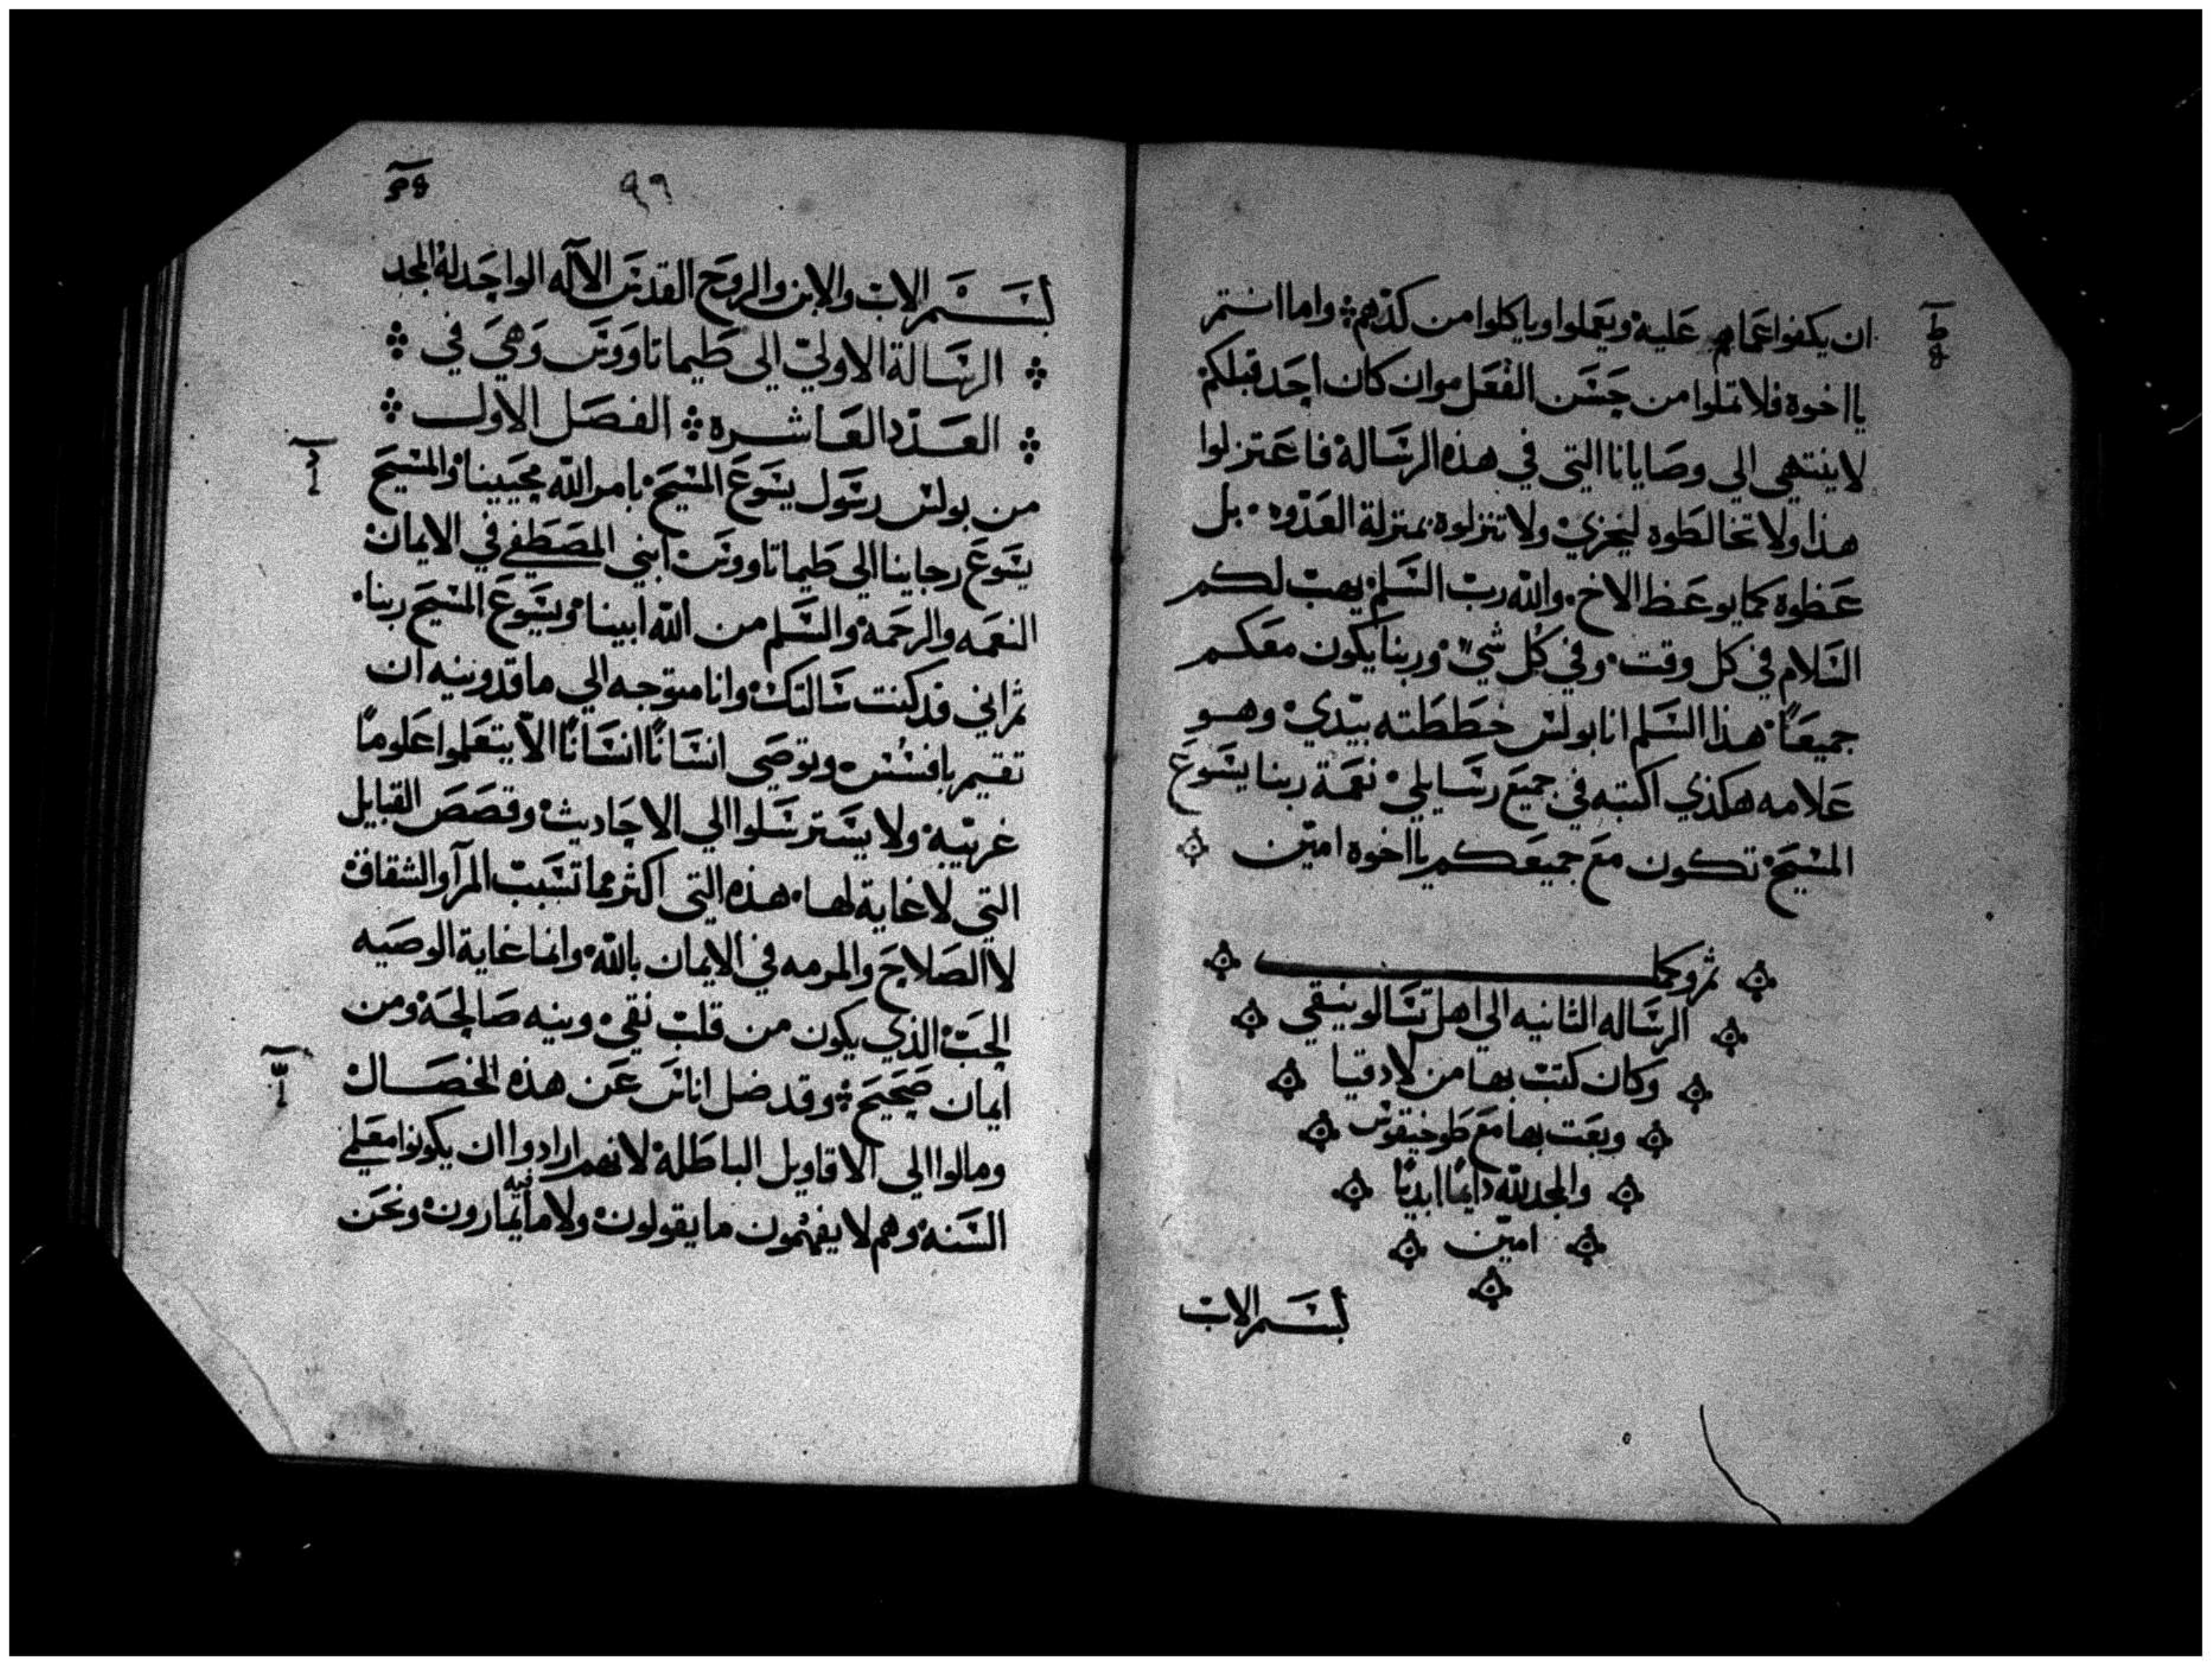 ان يكفوا عماهم عليه ويعملوا وياكلوا من كدهم واما انتم
يا اخوة فلا تملوا من حسن الفعل وان كان احد قبلكم
لا ينتهي الي وصايانا التي في هذه الرسالة فاعتزلوا
هذا ولا تخالطوه ليخزي ولا تنزلوه بمنزلة العدو بل
عظوه كما يوعظ الاخ والله رب السلم يهب لكم
السلام في كل وقت وفي كل شي وربنا يكون معكم
جميعًا هذا السلم انا بولس خططته بيدي وهو
علامه هكذي اكتبه في جميع رسايلي نعمة ربنا يسوع
المسيح تكون مع جميعكم يا اخوة امين
ثم وكملت
الرساله الثانيه الي اهل تسالونيقي
وكان كتب بها من لادقيا
وبعت بها مع طوخيقوس
والمجد لله دايمًا ابديًا
امين
بسم الاب
٩٦
بسم الاب والابن والروح القدس الآله الواحد له المجد
الرسالة الاولي الى طيماتاووس وهي في
العدد العاشره الفصل الاول
من بولس رسول يسوع المسيح بامر الله محيينا والمسيح
يسوع رجاينا الى طيماتاووس ابني المصطفي في الايمان
النعمه والرحمة والسلم من الله ابينا ويسوع المسيح ربنا
ثم اني قد كنت سالتك وانا متوجه الي ماقدونيه ان
تقيم بافسس وتوصي انسانًا انسانًا الا يتعلموا علومًا
غريبة ولا يسترسلوا الي الاحاديث وقصص القبايل
التي لا غاية لها هذه التي اكثر مما تسبب المرآ والشقاق
لا الصلاح والمرمه في الايمان بالله وانما غاية الوصيه
الحب الذي يكون من قلب نقي ونيه صالحة ومن
ايمان صحيح وقد ضل اناس عن هذه الخصال
ومالوا الي الاقاويل الباطلة لانهم ارادوا ان يكونوا معلمي
السنه وهم لا يفهمون ما يقولون ولا ما يمارون فيه ونحن